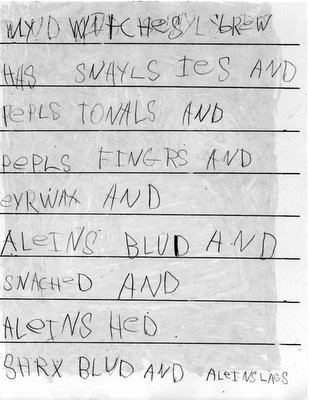 WITCHES BREW
HAS SNAYLS IES AND
PePLS TONALS AND
PePLS FINGRS AND
eYRWAX AND
ALeINS BLUD AND
SNACHeD AND
ALeINS HeD
SHRX BLUD AND ALeINS LAGS